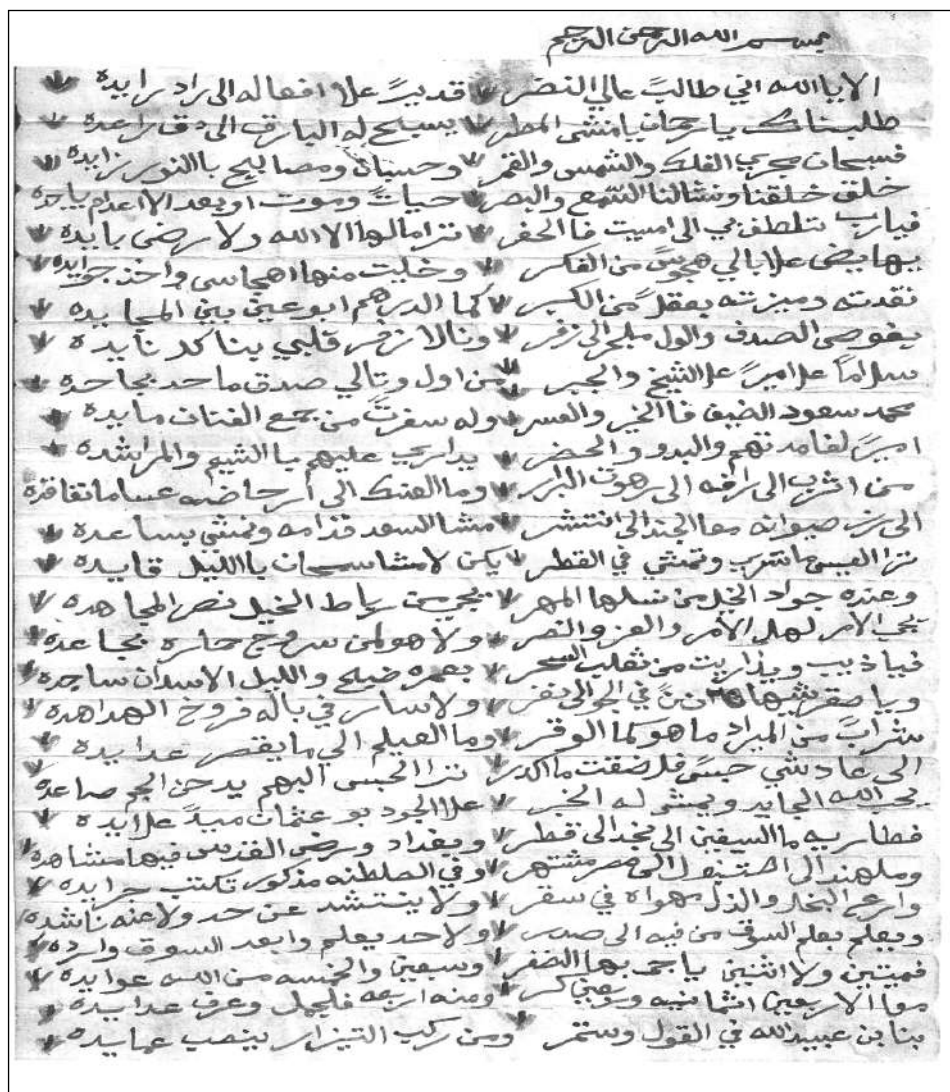 بسم الله الرحمن الرحيم
الا يا الله اني طالبً عالي النضر قديرً علا افعاله الى راد رايده
طلبناك يا رحمان يا منشي المطر يسبح له البارق الى دق راعده
فسبحان مجري الفلك والشمس والقمر وحسبان ومصابيح باالنور زايده
خلق خلقنا ونشالنا السمع والبصر حياتً وموت او بعد الاعدام ياجده
فيارب تلطف بي الى امسيت فا الحفر تزامالها الا الله ولا رضى بايده
يهايضى علا بالي هجوسً من الفكر وخليت منها اهجاسي واخذ جوايده
نقدته وميزته بعقلً من الكسر كما الدرهم ابو عين بين المجايده
يغوص الصدف والول ميلح الى زفر ونالا زفر قلبي بنا كد نايده
سلاماً علا اميرً علا الشيخ والجبر من اول وتالي صدق ماحد يجاحده
محمد سعود الضيف فا الخير والعسر وله سفرتً من جمع الفنات مايده
اميرً لغامد تهم والبدو والحضر يداري عليهم با الشيم والمراشده
من اشرب الى رافه الى رهوت البرار وما العنك الى ارحاضه عساما تفاقده
الى برز صيوانه معا الجند الى انتشر مشا السعد قدامه وتمشي يساعده
ترا العيس ماتشرب وتمشي في القطر يكن لامشا سرحان باالليل قايده
وعنده جواد الخيل من نسلها المهر يجي من رباط الخيل نصر المجاهده
يجب الأمر لهل الأمر والعز والنصر ولا هو لمن سروج حاره يجاعده
فيا ذيب ويذاريت من ثقلب السحر بعمره ضبح والليل الاسدان ساجده
ويا صقر شبهان في الجو الى نفر ولا سار في باله فروخ الهداهده
شرابً من الميراد ما هو كما الوقر وما العيلم الي ما يقصر عدايده
الى عاد شي حبسً فلا ضقت ما اكدر ترا الحبس البهم يدحن الجم صاعده
يجب الله الجايد ويمشو له الخبر علا الجود بو عثمان مبدً علايده
فطاريه ما السيفين الى نجد الى قطر وبغداد ورض القدس فيها مشاهده
وملهند الى اصتنبول الى مصر مشتهر وفي الصلطنه مذكور تكتب جرايده
وازعر البخل والذل مهواه في سقر ولا ينتشد عن حد ولا عنه ناشده
ويعلم بعلم السوق من فيه الى صدر ولا حد يعلم وابعد السوق وارده
فميتين ولا اثنين ياجي بها الضفر وسبعين والخمسه من الله عوايده
معا الاربعين اثمانيه وسبعين كر ومنه اربعه فلجمل وعرف عدايده
بنا بن عبيد الله في القول وستمر ومن ركب التيزار ينصب عمايده